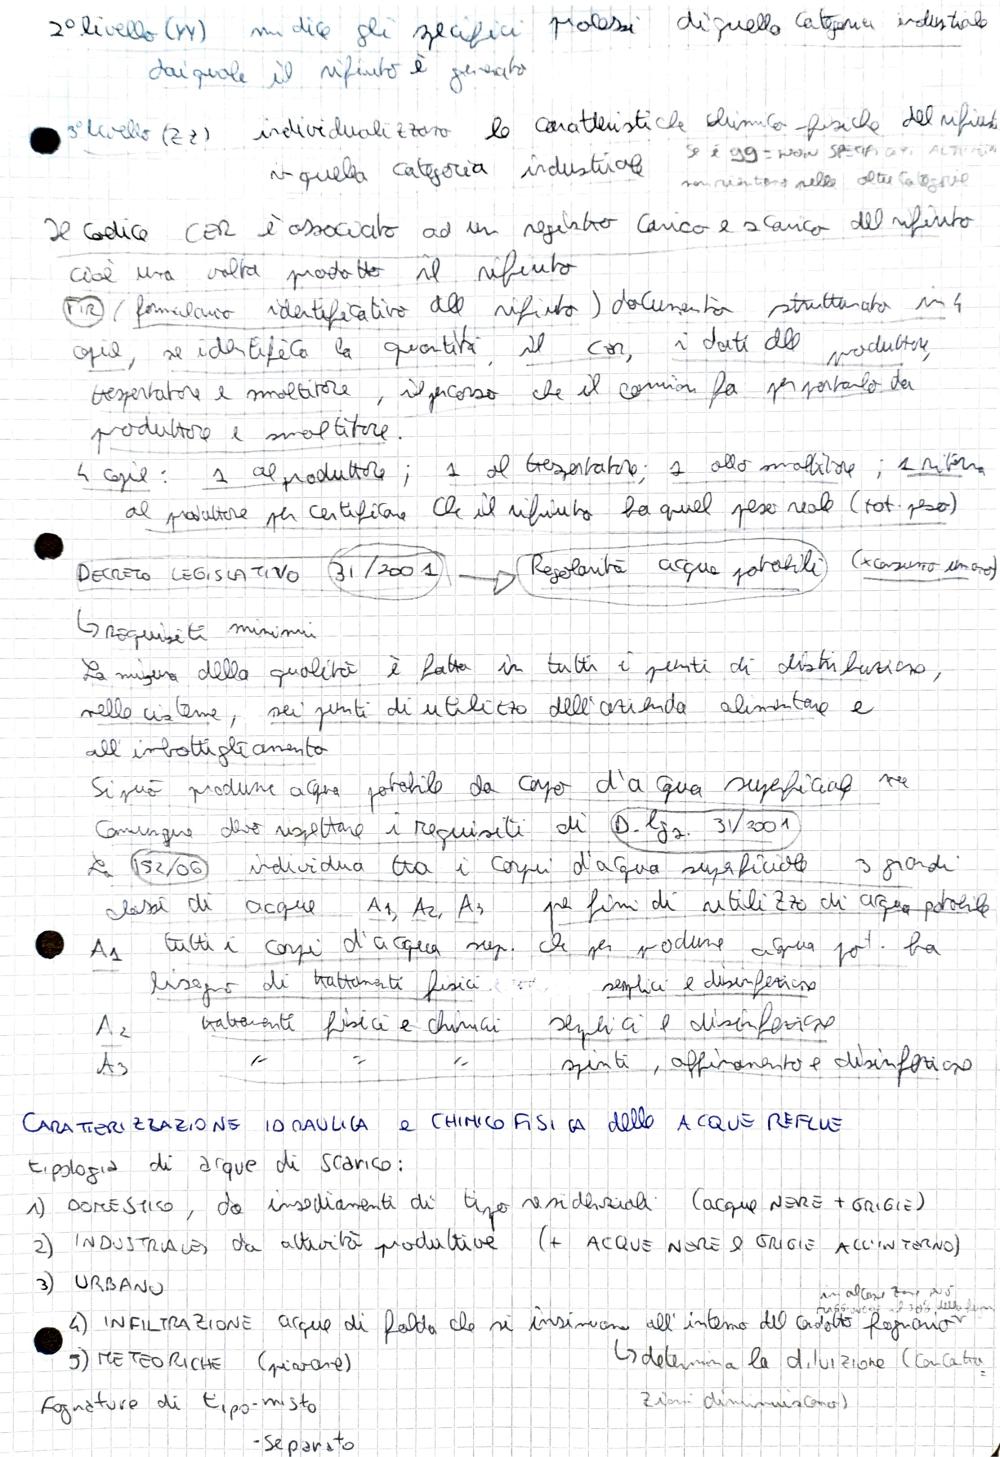 2° livello (YY) indice gli specifici processi di quella categoria industriale
dai quale il rifiuto è generato
3° livello (ZZ) individualizzano le caratteristiche chimico-fisiche del rifiuto
in quella categoria industriale
se è 99 = NON SPECIFICATI ALTRIMENTI
non rientrano nelle altre categorie
Il codice CER è associato ad un registro carico e scarico del rifiuto
cioè una volta prodotto il rifiuto
FIR (formulario identificativo del rifiuto) documento strutturato in 4
copie, se identifica la quantità, il cer, i dati del produttore,
trasportatore e smaltitore, il percorso che il camion fa per portarlo da
produttore e smaltitore.
4 copie: 1 al produttore; 1 al trasportatore; 1 allo smaltitore; 1 ritorna
al produttore per certificare che il rifiuto ha quel peso reale (tot. peso)
DECRETO LEGISLATIVO 31/2001 → Regolarità acque potabili (x consumo umano)
↳ requisiti minimi
La misura della qualità è fatta in tutti i punti di distribuzione,
nelle cisterne, nei punti di utilizzo dell'azienda alimentare e
all'imbottigliamento
Si può produrre acqua potabile da corpo d'acqua superficiale ma
comunque devo rispettare i requisiti di D.lgs. 31/2001
La 152/06 individua tra i corpi d'acqua superficiale 3 grandi
classi di acque A1, A2, A3 per fini di utilizzo di acqua potabile
A1 tutti i corpi d'acqua sup. che per produrre acqua pot. ha
bisogno di trattamenti fisici semplici e disinfezione
A2 trattamenti fisici e chimici semplici e disinfezione
A3 " " " spinti, affinamento e disinfezione
CARATTERIZZAZIONE IDRAULICA e CHIMICO FISICA delle ACQUE REFLUE
tipologia di acque di scarico:
1) DOMESTICO, da insediamenti di tipo residenziali (acque NERE + GRIGIE)
2) INDUSTRIALE, da attività produttive (+ ACQUE NERE e GRIGIE ALL'INTERNO)
3) URBANO
in alcune zone può
4) INFILTRAZIONE acque di falda che si insinuano all'interno del condotto fognario
5) METEORICHE (piovane) ↳ determina la diluizione (concentra=
Fognature di tipo - misto zioni diminuiscono)
- separato